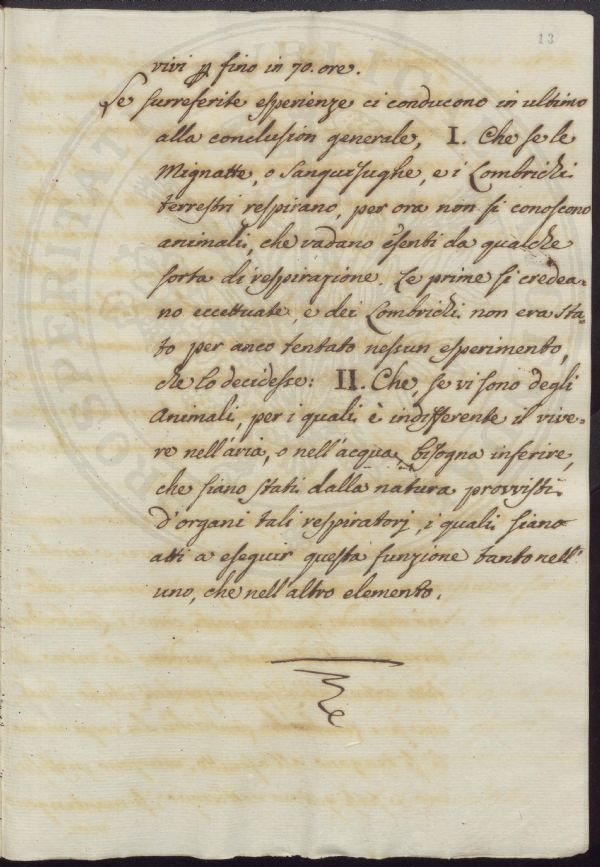 13
vivi p fino in 70. ore.
Le surreferite esperienze ci conducono in ultimo
alla conclusion generale, I. Che se le
Mignatte, o Sanguisughe, e i Lombrichi
terrestri respirano, per ora non si conoscono
animali, che vadano esenti da qualche
sorta di respirazione. Le prime si credea-
no eccettuate, e dei Lombrichi non era sta-
to per anco tentato nessun esperimento,
che lo decidesse: II. Che, se vi sono degli
Animali, per i quali è indifferente il vive-
re nell'aria, o nell'acqua, bisogna inferire,
che siano stati dalla natura provvisti
d'organi tali respiratorj, i quali siano
atti a eseguir questa funzione tanto nell'
uno, che nell'altro elemento.